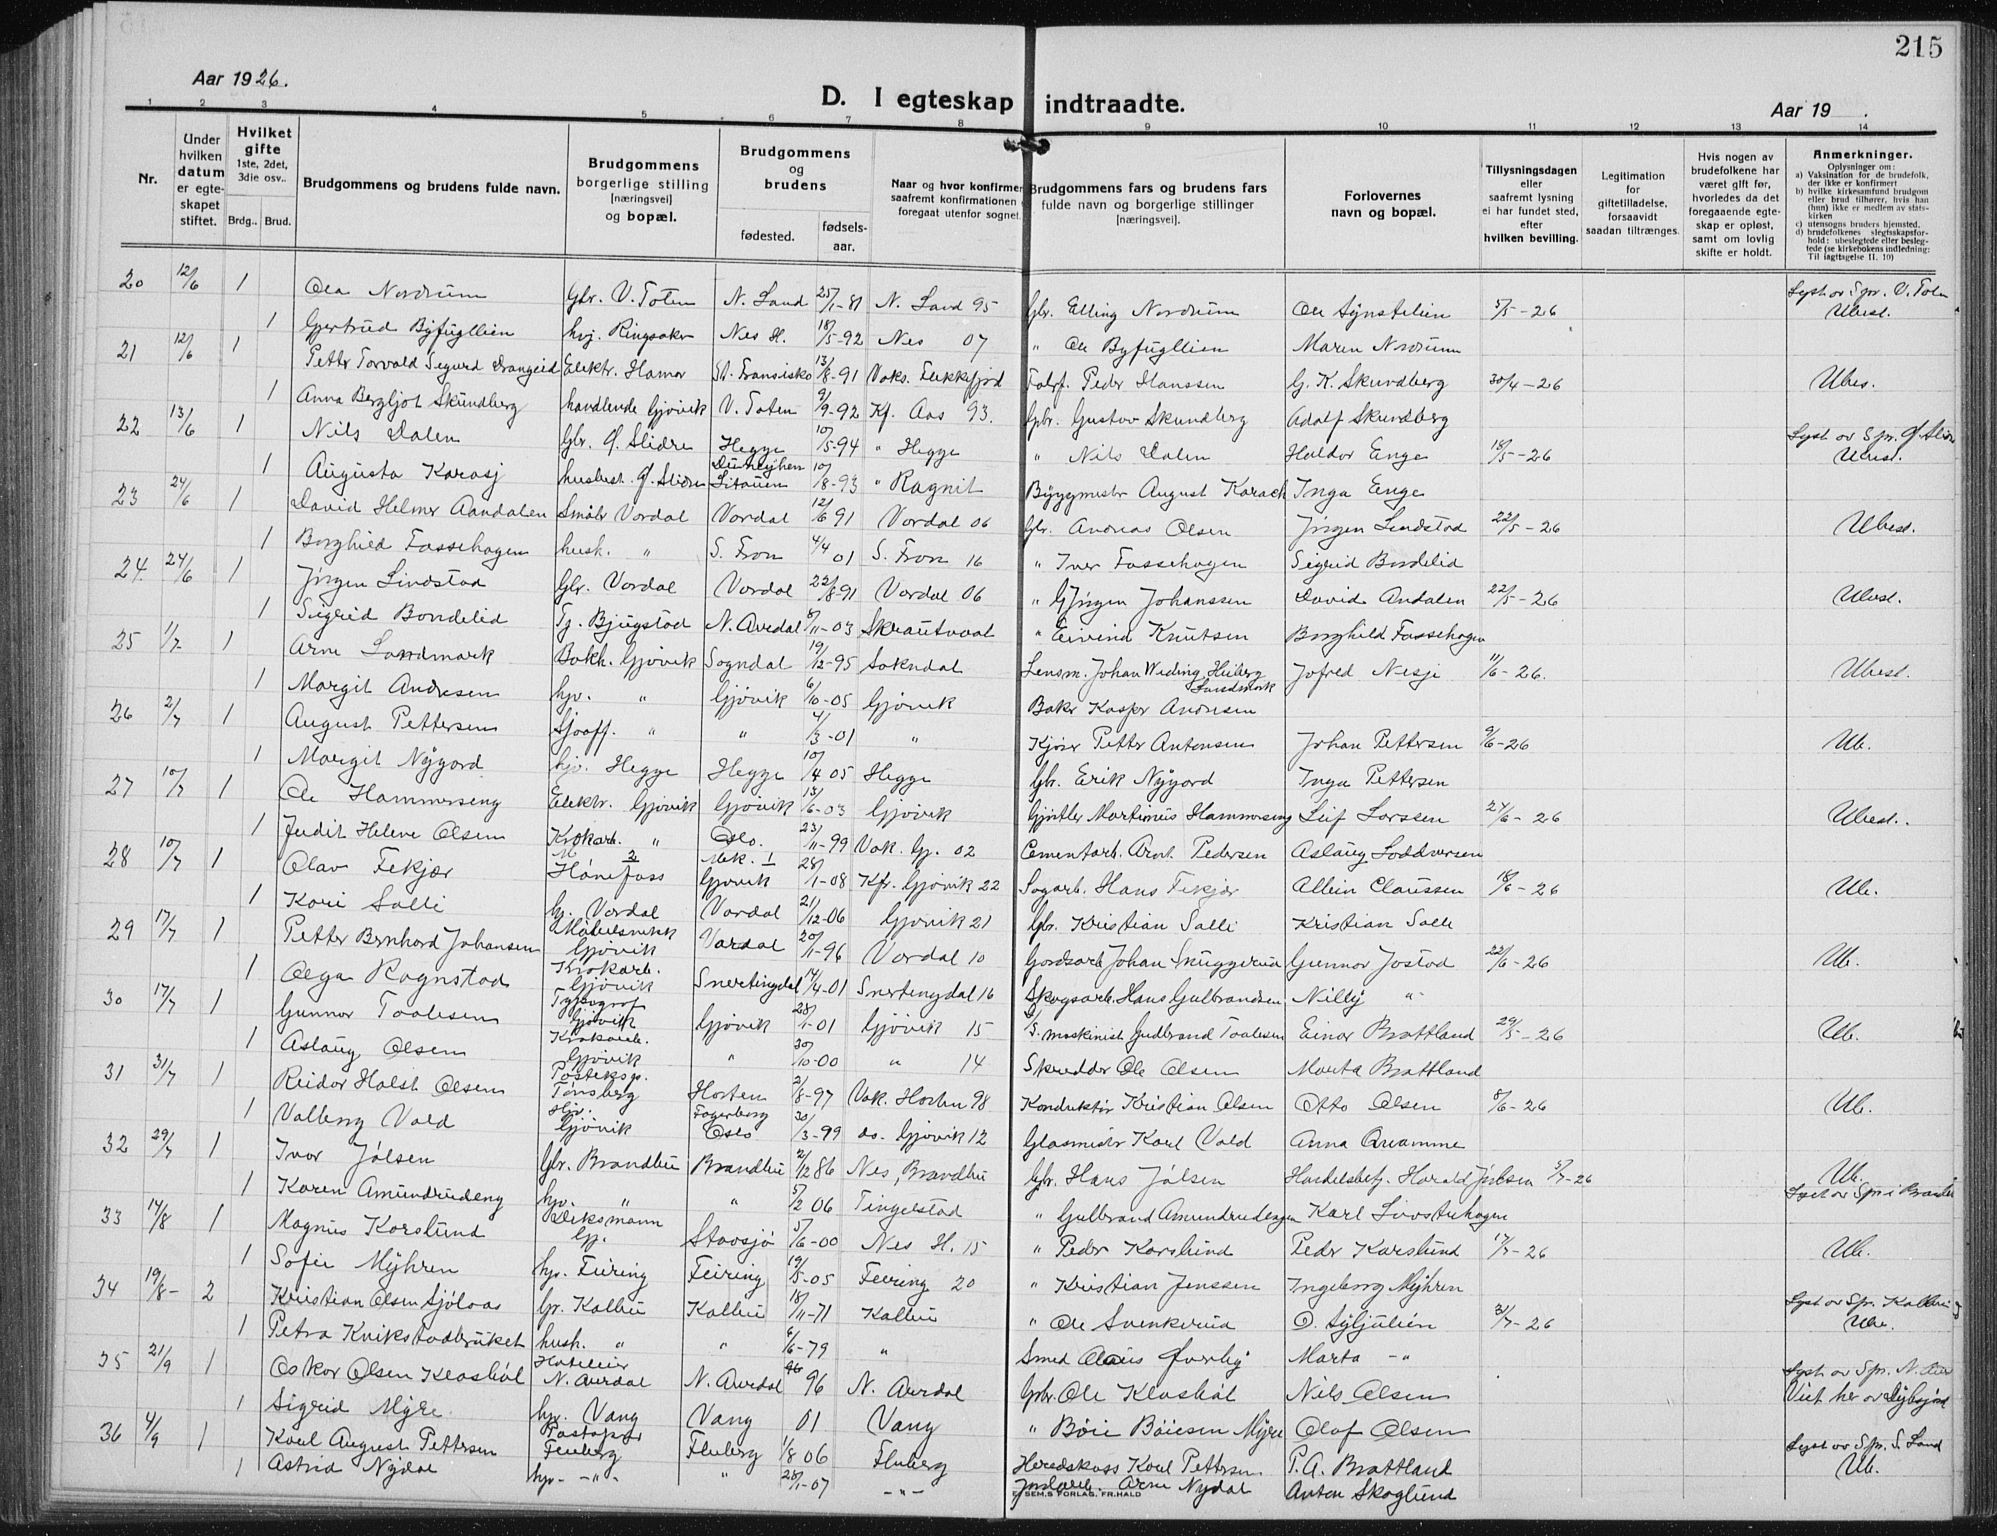 215
Aar 1926.
D. I egteskap indtraadte.
Aar 19    .
1 2 3 4 5 6 7 8 9 10 11 12 13 14
Nr.
Under hvilken datum er egteskapet stiftet.
Hvilket gifte 1ste, 2det, 3die osv..
Brdg.. Brud.
Brudgommens og brudens fulde navn.
Brudgommens borgerlige stilling [næringsvei] og bopæl.
Brudgommens og brudens
fødested.
fødselsaar.
Naar og hvor konfirmer
saafremt konfirmationen
foregaat utenfor sognet.
Brudgommens fars og brudens fars fulde navn og borgerlige stillinger [næringsvei].
Forlovernes navn og bopæl.
Tillysningsdagen eller saafremt lysning ei har fundet sted, efter hvilken bevilling.
Legitimation for giftetilladelse, forsaavidt saadan tiltrænges.
Hvis nogen av brudefolkene har været gift før, hvorledes da det foregaaende egteskap er opløst, samt om lovlig skifte er holdt.
Anmerkninger.
Oplysninger om:
a) Vaksination for de brudefolk, der ikke er konfirmert
b) hvilke kirkesamfund brudgom eller brud tilhører, hvis han (hun) ikke er medlem av statskirken
c) utensogns bruders hjemsted.
d) brudefolkenes slegtsskapsforhold: ubeslegtede eller beslegtede (se kirkebokens indledning: Til iagttagelse II. 10)
20 12/6 1 Ola Nordrum Gbr. V. Toten N. Land 25/1-81 N. Land 95 Gbr. Elling Nordrum Ole Synstelien 5/5-26 Lyst av Spr. V. Toten Ubesl.
1 Gjertrud Byfuglien hvj. Ringsaker Nes H. 18/5-92 Nes 07 " Ole Byfuglien Maren Nordrum
21 12/6 1 Petter Torvald Sigurd Drangeid Elektr. Hamar St. Fransisko 13/8-91 Vaks. Flekkefjord Peder Hanssen G. K. Skundberg 30/4-26 Ubes.
1 Anna Bergljot Skundberg handlende Gjøvik V. Toten 9/9-92 Kf. Aas 93. Gbr. Gustav Skundberg Adolf Skundberg
22 13/6 1 Nils Dalen Gbr. Ø. Slidre Hegge 10/5-94 " Hegge " Nils Dalen Haldor Enge 18/5-26 Lyst av Spr. Ø. Slidre Ubesl.
1 Augusta Karasj husbest. Ø. Slidre Litauen 10/8-93 " Ragnit Byggmestr August Karach Inga Enge
23 24/6 1 David Helmer Aandalen Småbr Vardal Vardal 12/6 91 Vardal 06 Gbr. Andreas Olsen Jørgen Lindstad 22/5-26 Ubesl.
1 Borghild Fossehagen hush. " S. Fron 4/4 01 S. Fron 16 " Iver Fossehagen Sigrid Bondelid
24. 24/6 1 Jørgen Lindstad Gbr. Vardal Vardal 22/8-91 Vardal 06 " Jørgen Johanssen David Andalen 22/5-26 Ubesl.
1 Sigrid Bondelid Tj. Bjugstad N. Aurdal 8/11-03 Skrautvaal " Eivind Knutsen Borghild Fossehagen
25 1/7 1 Arne Landmark Bokh. Gjøvik Sogndal 19/12-95 Sokndal Lensm. Johan Weding Heiberg Landmark Jofred Nesje 11/6-26. Ubesl.
1 Margit Andresen hjv. " Gjøvik 6/10-05 Gjøvik Baker Kasper Andresen
26 2/7 1 August Pettersen Sjåff. " " 4/3-01 " Kjører Petter Antonsen Johan Pettersen 9/6-26 Ub.
1 Margit Nygord hjv. Hegge Hegge 10/4 05 Hegge Gbr. Erik Nygord Inga Pettersen
27 10/7 1 Ole Hammerseng Elektr. Gjøvik Gjøvik 13/6-03 Gjøvik Martinius Hammerseng Leif Larssen 24/6-26 Ubesl.
1 Judit Helene Olsen Krokarb. " Oslo. 23/11-99 Vak. Gj. 02 Cementarb. Arnt. Pedersen Aslaug Loddversen
28 10/7 1 Olav Fekjær Hønefoss Gjøvik 28/1-08 Kfr. Gjøvik 22 Sagarb. Hans Fekjær Allein Claussen 18/6-26 Ub.
1 Kari Salli hj. Vardal Vardal 21/12-06 Gjøvik 21 Gbr. Kristian Salli Kristian Salli
29 17/7 1 Petter Bernhard Johansen Møbelsnekk Gjøvik Vardal 20/11-96 Vardal 10 Gardsarb Johan Snuggerud Gunnar Jostad 22/6-26 Ub.
1 Olga Ragnstad Krokarb. Gjøvik Snertingdal 14/4-01 Snertingdal 16 Skogsarb. Hans Gulbrandsen Nilly -"-
30 17/7 1 Gunnar Toalesen Typograf Gjøvik Gjøvik 28/1-01 Gjøvik 15 maskinist Gudbrand Toalesen Einar Brattland 29/5-26 Ub.
1 Aslaug Olsen Krokarb. Gjøvik " 30/10-00 " 14 Skredder Ole Olsen Marta Brattland
31 31/7 1 Reidar Holst Olsen Posteksp. Tønsberg Horten 2/8-97 Vak. Horten 98 Konduktør Kristian Olsen Otto Olsen 8/6-26 Ub.
1 Valborg Vold Hjv. Gjøvik Fagerborg Oslo 30/3-99 do. Gjøvik 12 Glasmestr Karl Vold Anna Qvamme
32 29/7 1 Ivar Jølsen Gbr. Brandbu Brandbu 2/12 86 Nes, Brandbu Gbr. Hans Jølsen Handelsbetj. Harald Jølsen 5/7-26 Ub. Lyst av Spr i Brandbu
1 Karen Amundrudeng hjv. " " 5/2 06 Tingelstad " Gulbrand Amundrudengen Karl Livostuhagen
33 14/8 1 Magnus Karslund Gj. Stavsjø 5/6-00 Nes H. 15 " Peder Karslund Peder Karslund 17/7-26 Ub.
1 Sofie Myhren hjv. Feiring Feiring 19/5-05 Feiring 20 " Kristian Jenssen Ingeborg Myhren
34 19/8- 2 Kristian Olsen Sjølaas Gbr. Kolbu Kolbu 18/11-71 Kolbu " Ole Svenkerud O. Syljulien 31/7-26 Lyst av Spr. Kolbu Ub.
1 Petra Kvikstadbruket hush. " " 6/6-79 " Smed Olaus Øverby Marta -"-
35 21/9 1 Oskar Olsen Klashøl Hoteleier N. Aurdal N. Aurdal 96 N. Aurdal Gbr. Ole Klashøl Nils Olsen Lyst av Spr. N. Aur Viet her av Dybsjord
1 Sigrid Myre. hjv. Vang Vang 01 Vang " Bøie Bøiesen Myre Olaf Olsen
36 4/9 1 Karl August Pettersen Fluberg Fluberg 1/8 06 Fluberg Heredskass Karl Pettersen P. A. Brattland Lyst av Spr. S. Land Ub.
1 Astrid Nydal hjv- -"- " 28/1-07 -"- Arne Nydal Anton Skoglund
E. SEM,S FORLAG, FR.HALD